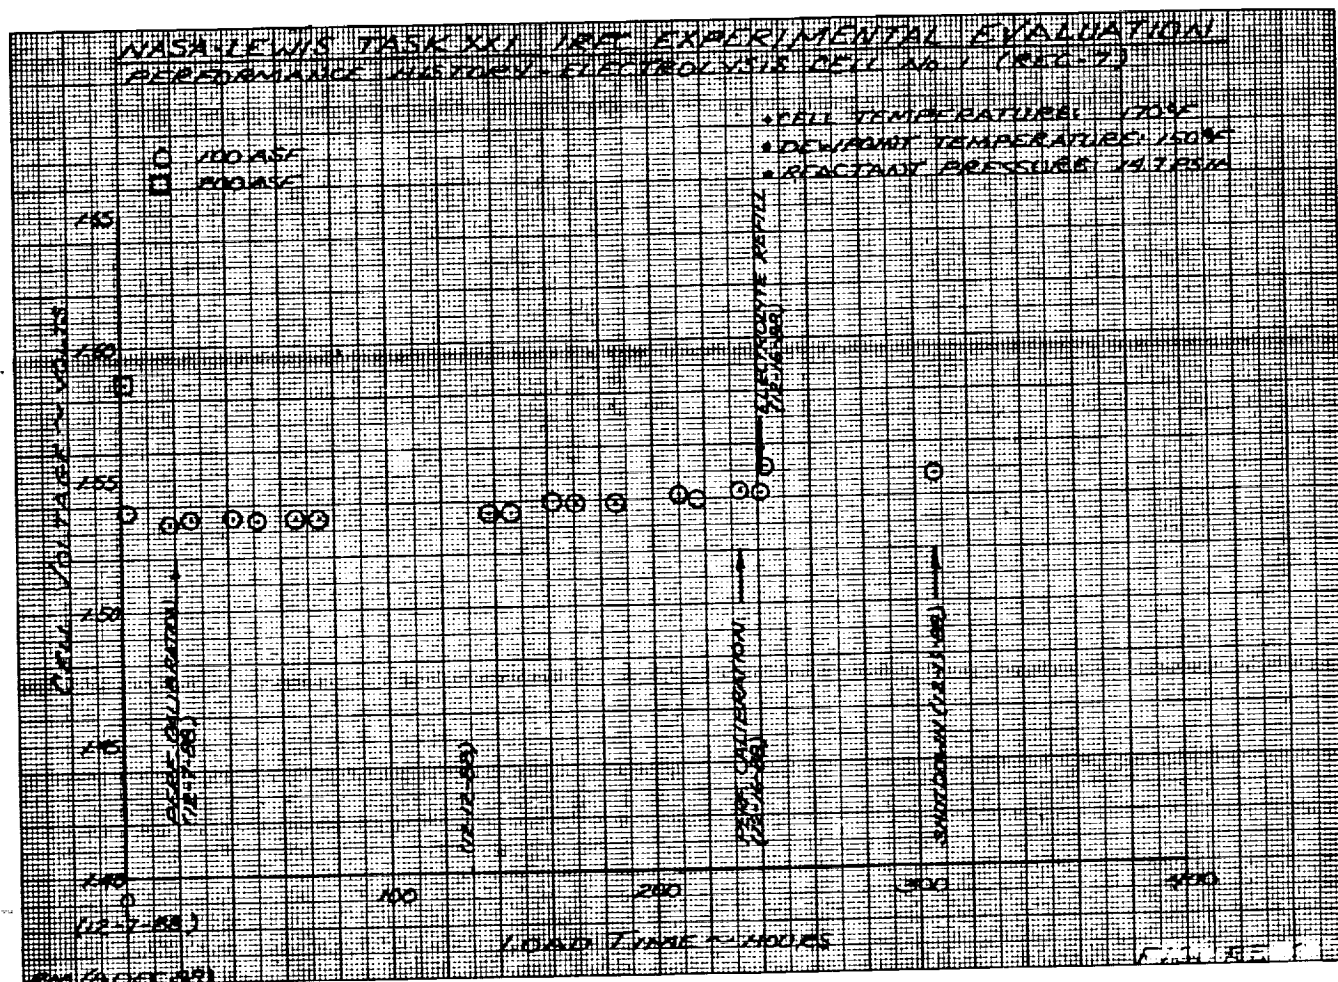 NASA-LEWIS TASK XXI IRFC EXPERIMENTAL EVALUATION
PERFORMANCE HISTORY - ELECTROLYSIS CELL NO 1 (REC-7)
• CELL TEMPERATURE: 170°F
• DEWPOINT TEMPERATURE: 150°F
• REACTANT PRESSURE: 14.7 PSIA
100 ASF
200 ASF
CELL VOLTAGE ~ VOLTS
1.65
1.60
1.55
1.50
1.45
1.40
PERF CALIBRATION
(12-7-88)
(12-12-88)
PERF. CALIBRATION
(12-16-88)
ELECTROLYTE REFILL
(12-16-88)
SHUTDOWN
0
100
200
300
400
(12-7-88)
LOAD TIME ~ HOURS